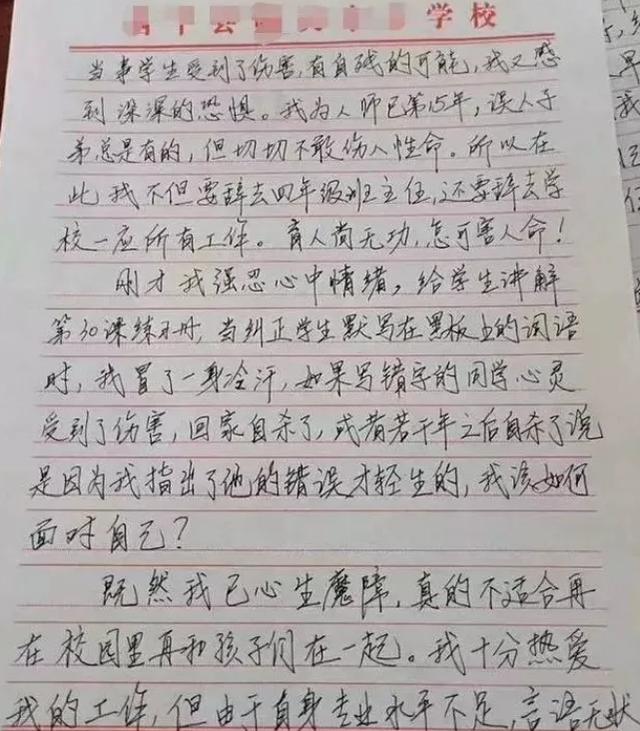 学校
当事学生受到了伤害,有自残的可能,我又感
到深深的恐惧。我为人师已第15年,误人子
弟总是有的,但切切不敢伤人性命。所以在
此我不但要辞去四年级班主任,还要辞去学
校一应所有工作。育人尚无功,怎可害人命!
刚才我强忍心中情绪,给学生讲解
第30课练习册,当纠正学生默写在黑板上的词语
时,我冒了一身冷汗,如果写错字的同学心灵
受到了伤害,回家自杀了,或者若干年之后自杀了说
是因为我指出了他的错误才轻生的,我该如何
面对自己?
既然我已心生魔障,真的不适合再
在校园里再和孩子们在一起。我十分热爱
我的工作,但由于自身专业水平不足,言语无状